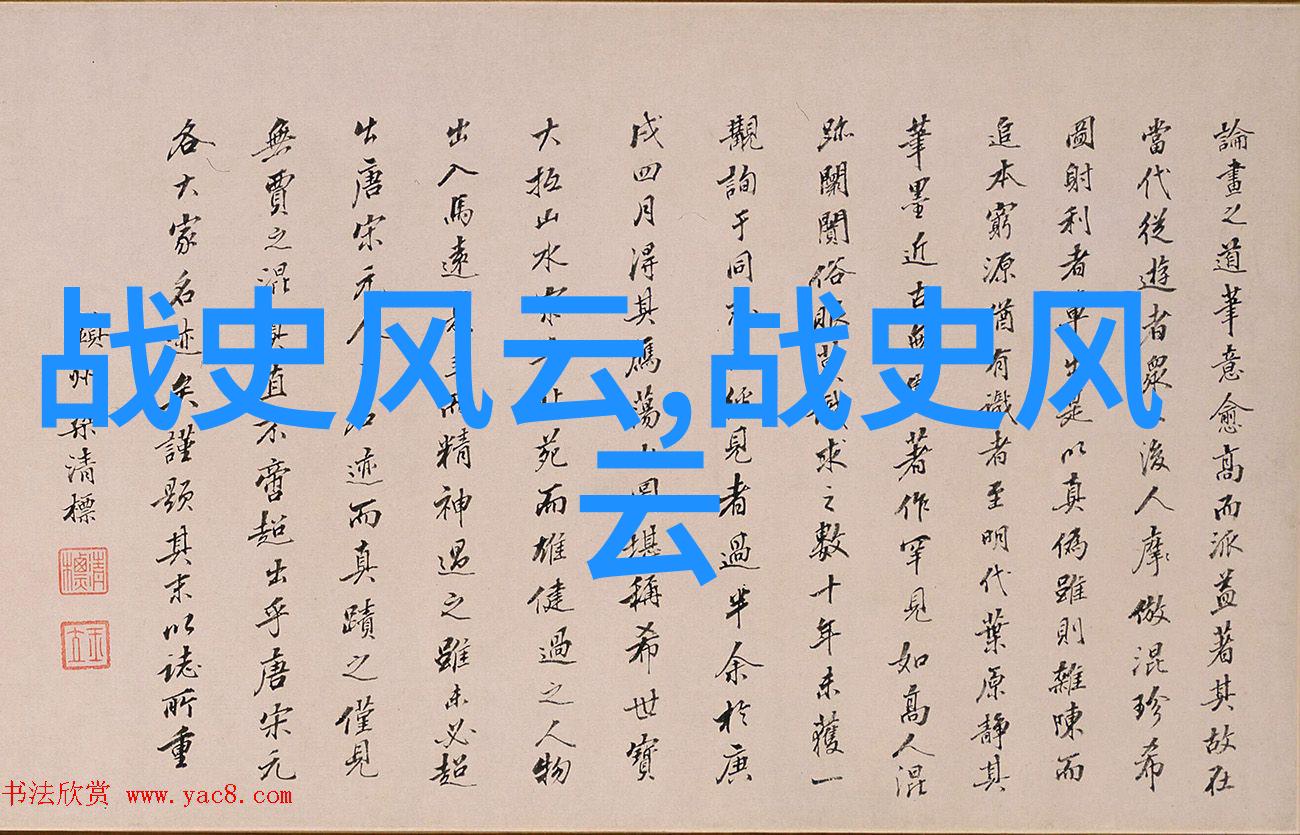 論畫之道筆意愈高而派益著其故在
當代從遊者眾後人摹倣混珍希
圖射利者畢出是以真偽雖則雜陳而
追本窮源猶有識者至明代葉原靜其
筆墨近古無著作罕見如高人混
跡闤闠俗眼莫識求之數十年未獲一
觀詢于同見者過半余於庚
戌四月淂其馮蕩圖堪稱希世寶
大抵山水宗苑而雄健過之人物
出入馬遠而精神過之雖未必超
出唐宋元人名迹而真蹟之僅見
無賈之混真直不啻超出乎唐宋元
各大家名迹矣謹題其末以誌所重
孫清標
清標
战史风云,战史风
云
书法欣赏 www.yac8.com